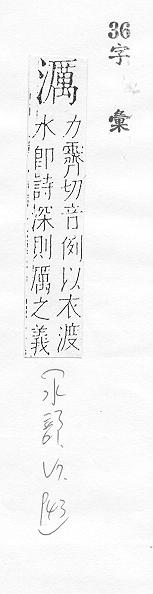 36字彙
濿
力霽切音例以衣渡
水卽詩深則厲之義
(水部, V7, P43)